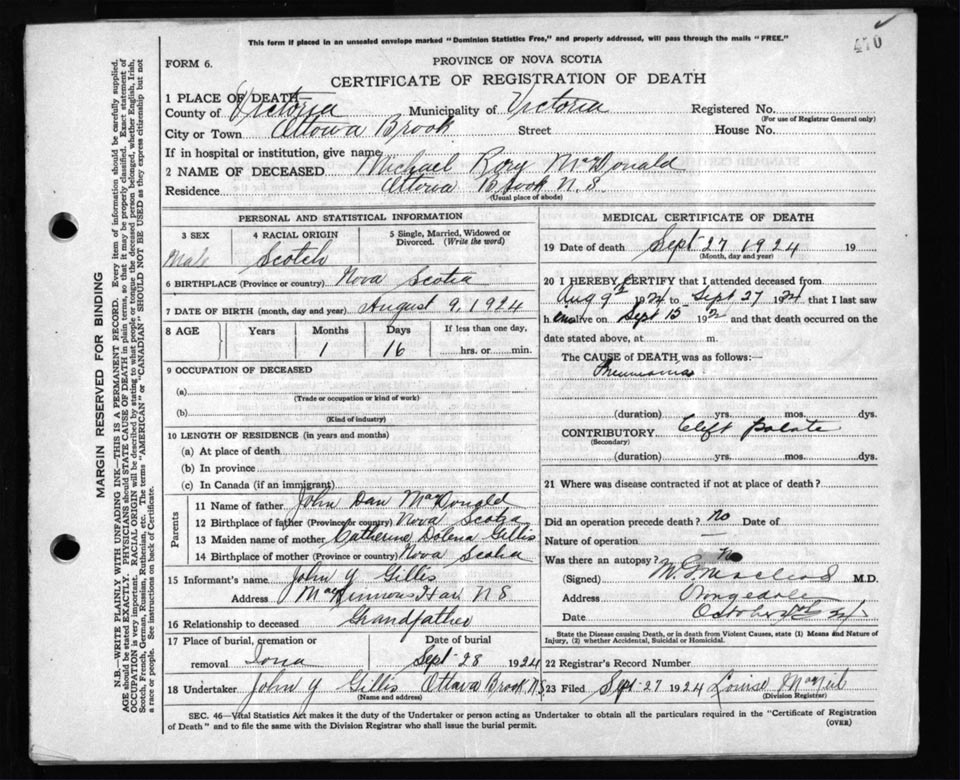 This form if placed in an unsealed envelope marked "Dominion Statistics Free," and properly addressed, will pass through the mails "FREE."
470
FORM 6.
PROVINCE OF NOVA SCOTIA
CERTIFICATE OF REGISTRATION OF DEATH
1 PLACE OF DEATH
County of Victoria Municipality of Victoria Registered No.
(For use of Registrar General only)
City or Town Ottowa Brook Street House No.
If in hospital or institution, give name
2 NAME OF DECEASED Michael Rory McDonald
Residence Brook N.S.
(Usual place of abode)
PERSONAL AND STATISTICAL INFORMATION
3 SEX 4 RACIAL ORIGIN 5 Single, Married, Widowed or Divorced. (Write the word)
Male Scotch
6 BIRTHPLACE (Province or country) Nova Scotia
7 DATE OF BIRTH (month, day and year) August 9, 1924
8 AGE Years Months Days If less than one day,
1 16 hrs. or min.
9 OCCUPATION OF DECEASED
(a)
(Trade or occupation or kind of work)
(b)
(Kind of industry)
10 LENGTH OF RESIDENCE (in years and months)
(a) At place of death
(b) In province
(c) In Canada (if an immigrant)
Parents
11 Name of father John Dan MacDonald
12 Birthplace of father (Province or country) Nova Scotia
13 Maiden name of mother Catherine Dolena Gillis
14 Birthplace of mother (Province or country) Nova Scotia
15 Informant's name John Y Gillis
Address MacKinnons Har. N S
16 Relationship to deceased Grandfather
17 Place of burial, cremation or removal Iona Date of burial Sept 28 1924
18 Undertaker John Y Gillis Ottawa Brook N.S
(Name and address)
MEDICAL CERTIFICATE OF DEATH
19 Date of death Sept 27 1924 19
(Month, day and year)
20 I HEREBY CERTIFY that I attended deceased from
Aug 9 1924 to Sept 27 1924 that I last saw
h im alive on Sept 15 192 and that death occurred on the
date stated above, at m.
The CAUSE OF DEATH was as follows:—
Pneumonia
(duration) yrs. mos. dys.
CONTRIBUTORY Cleft palate
(Secondary)
(duration) yrs. mos. dys.
21 Where was disease contracted if not at place of death?
Did an operation precede death? no Date of
Nature of operation
Was there an autopsy? no
(Signed) M.D.
Address
Date October
State the Disease causing Death, or in death from Violent Causes, state (1) Means and Nature of Injury, (2) whether Accidental, Suicidal or Homicidal.
22 Registrar's Record Number
23 Filed Sept 27 1924 Louise MacNeil
(Division Registrar)
SEC. 46—Vital Statistics Act makes it the duty of the Undertaker or person acting as Undertaker to obtain all the particulars required in the "Certificate of Registration
of Death" and to file the same with the Division Registrar who shall issue the burial permit.
(OVER)
MARGIN RESERVED FOR BINDING
N.B.—WRITE PLAINLY WITH UNFADING INK—THIS IS A PERMANENT RECORD. Every item of information should be carefully supplied.
AGE should be stated EXACTLY. PHYSICIANS should STATE CAUSE OF DEATH in plain terms, so that it may be properly classified. Exact statement of
OCCUPATION is very important. RACIAL ORIGIN will be described by stating to what people or tongue the deceased person belonged, whether English, Irish,
Scotch, French, German, Russian, Ruthenian, etc. The terms "AMERICAN" or "CANADIAN" SHOULD NOT BE USED as they express citizenship but not
a race or people. See instructions on back of Certificate.